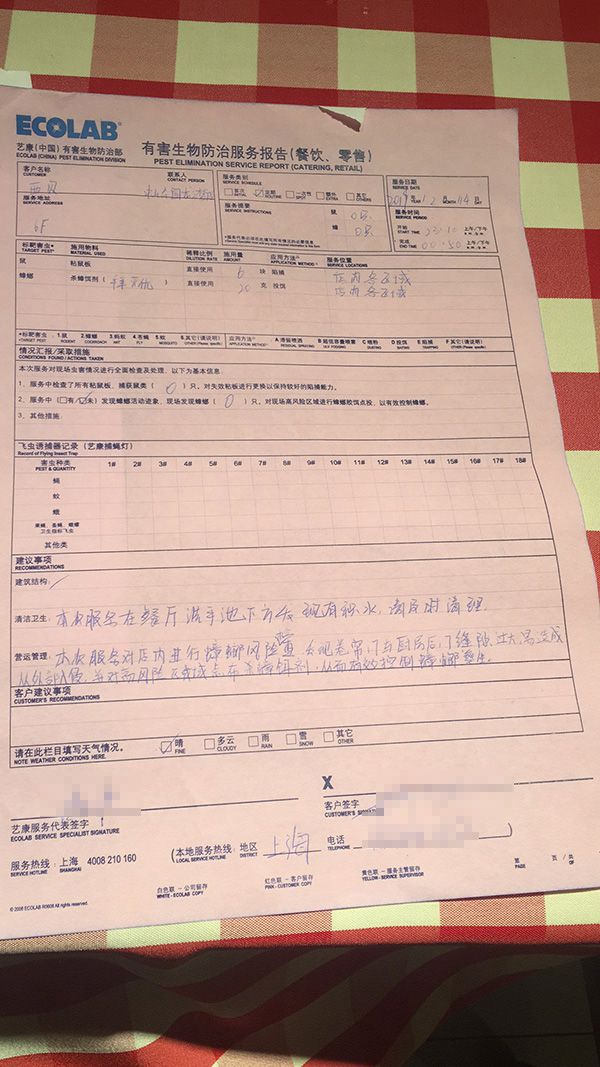 ECOLAB
艺康(中国)有害生物防治部
ECOLAB (CHINA) PEST ELIMINATION DIVISION
有害生物防治服务报告(餐饮、零售)
PEST ELIMINATION SERVICE REPORT (CATERING, RETAIL)
客户名称 联系人
CUSTOMER CONTACT PERSON
西贝
服务地址
SERVICE ADDRESS
6F
服务类别
SERVICE SCHEDULE
首次 定期 一次性 额外 其它
INITIAL ROUTINE SPOT EXTRA OTHERS
服务提要 鼠 0只
SERVICE INSTRUCTIONS 蟑 0只
服务日期
SERVICE DATE
2017年 12月 14日
YEAR MONTH
服务时间
SERVICE PERIOD
开始 23:10 上午/下午
START TIME AM/PM
完成 00:50 上午/下午
END TIME AM/PM
标靶害虫* 施用物料 稀释比例 施用量 应用方法 服务位置
TARGET PEST MATERIAL USED DILUTION RATE AMOUNT APPLICATION METHOD SERVICE LOCATIONS
鼠 粘鼠板 直接使用 6 块 陷捕 店内各区域
蟑螂 杀蟑饵剂( ) 直接使用 20 克 投饵 店内各区域
*标靶害虫 1.鼠 2.蟑螂 3.蚂蚁 4.苍蝇 5.蚊 6.其它(请说明) 应用方法 A 滞留喷洒 B 超低容量喷雾 C 喷粉 D 投饵 E 陷捕 F 其它(请说明)
*TARGET PEST RODENT COCKROACH ANT FLY MOSQUITO OTHER (Please specify) APPLICATION METHOD RESIDUAL SPRAYING ULV FOGGING DUSTING BAITING TRAPPING OTHER (Please specify)
情况汇报/采取措施
CONDITIONS FOUND/ACTIONS TAKEN
本次服务对现场虫害情况进行全面检查及处理，以下为基本信息:
1、服务中检查了所有粘鼠板、捕获鼠类( 0 )只，对失效粘板进行更换以保持较好的捕鼠能力。
2、服务中(□有/☑未)发现蟑螂活动迹象，现场发现蟑螂( 0 )只，对现场高风险区域进行蟑螂胶饵点投，以有效控制蟑螂。
3、其他措施:
飞虫诱捕器记录(艺康捕蝇灯)
Record of Flying Insect Trap
害虫种类 1# 2# 3# 4# 5# 6# 7# 8# 9# 10# 11# 12# 13# 14# 15# 16# 17# 18#
PEST & QUANTITY
蝇
蚊
蛾
果蝇、蚤蝇、蛾蠓
卫生指标飞虫
其他类
建议事项
RECOMMENDATIONS
建筑结构:
清洁卫生: 本次服务在餐厅洗手池下方发现有积水,请及时清理
营运管理: 本次服务对店内进行蟑螂风险 ,发现卷帘门与厨房后门缝隙过大,易造成
从外部入侵,并对高风险区域点布杀蟑饵剂,从而有效控制蟑螂孳生.
客户建议事项
CUSTOMER'S RECOMMENDATIONS
请在此栏目填写天气情况。
NOTE WEATHER CONDITIONS HERE.
晴 多云 雨 雪 其它
FINE CLOUDY RAIN SNOW OTHER
X
艺康服务代表签字
ECOLAB SERVICE SPECIALIST SIGNATURE
客户签字
CUSTOMER'S
服务热线: 上海 4008 210 160
SERVICE HOTLINE SHANGHAI
(本地服务热线: 地区 上海 电话 )
LOCAL SERVICE HOTLINE DISTRICT TELEPHONE
白色联 - 公司留存 红色联 - 客户留存 黄色联 - 服务主管留存
WHITE - ECOLAB COPY PINK - CUSTOMER COPY YELLOW - SERVICE SUPERVISOR
第 页 / 共
PAGE OF
© 2006 ECOLAB R0606 All rights reserved.